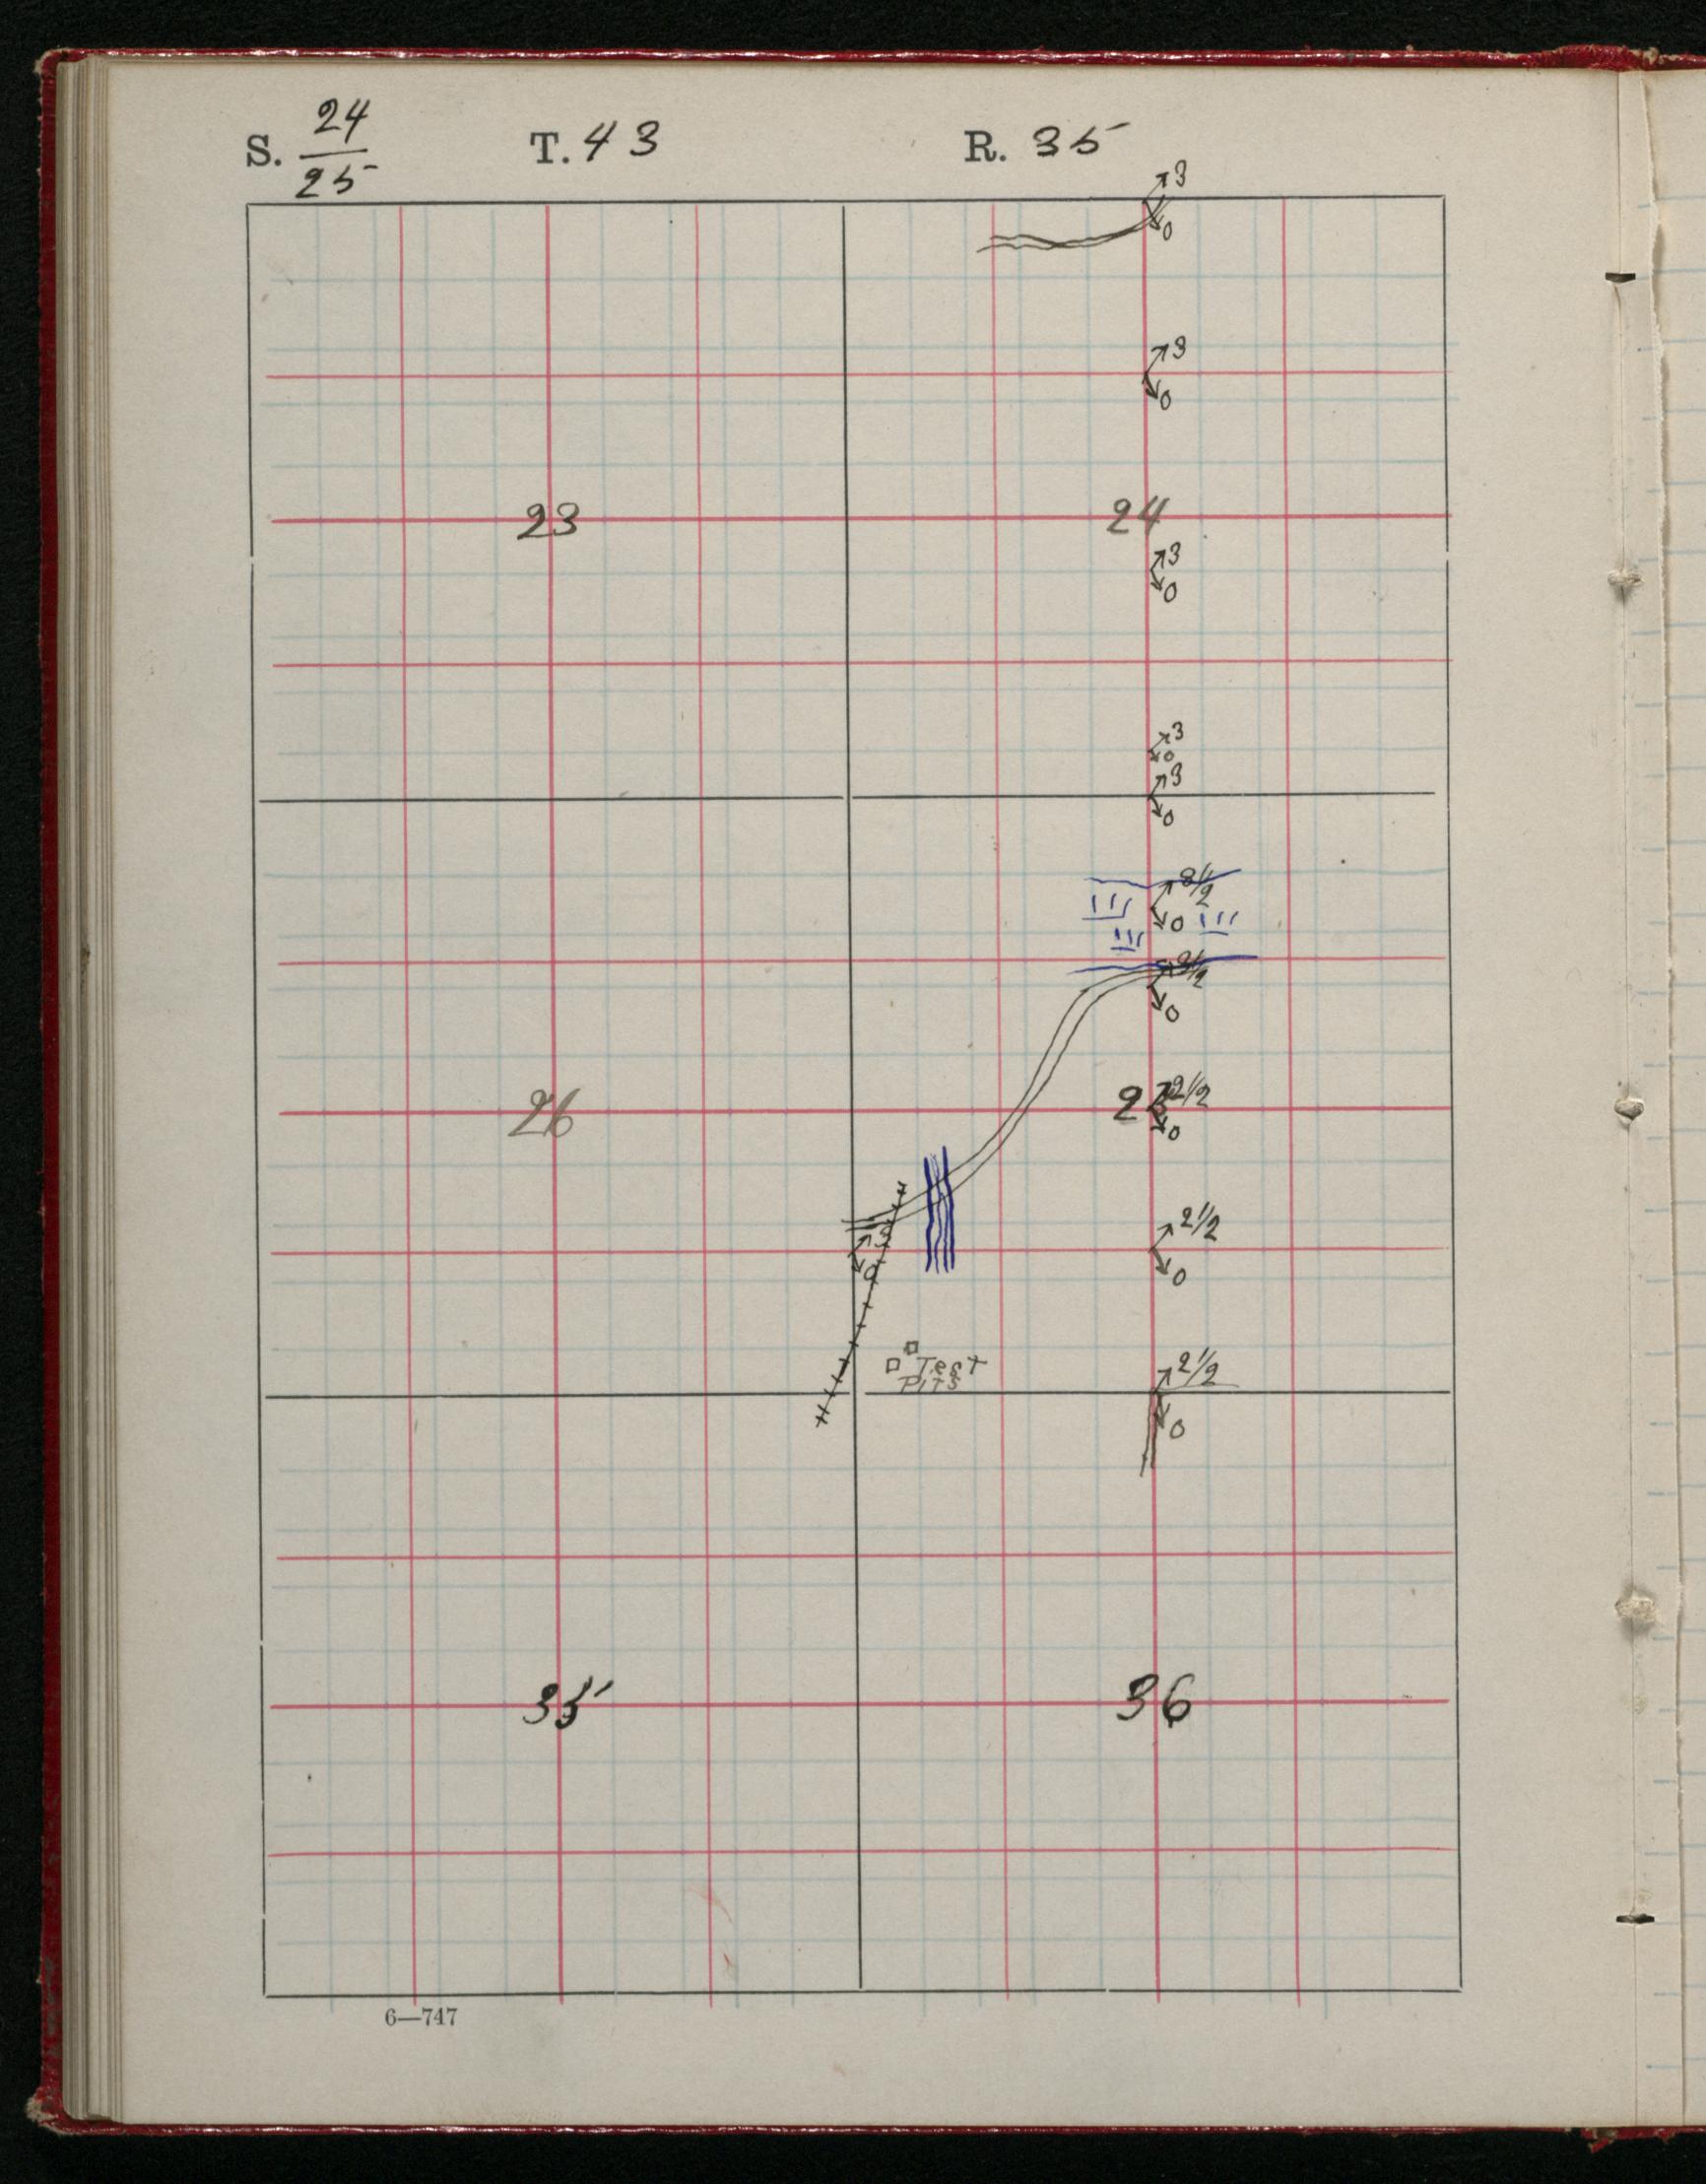 S. 24/25 T. 43 R. 35
3
0
3
0
23 24
3
0
3
0
3
0
3 1/2
0
3 1/2
0
26 25 2 1/2
0
2 1/2
3
0 0
2 1/2
Test
Pits
0
35 36
6—747